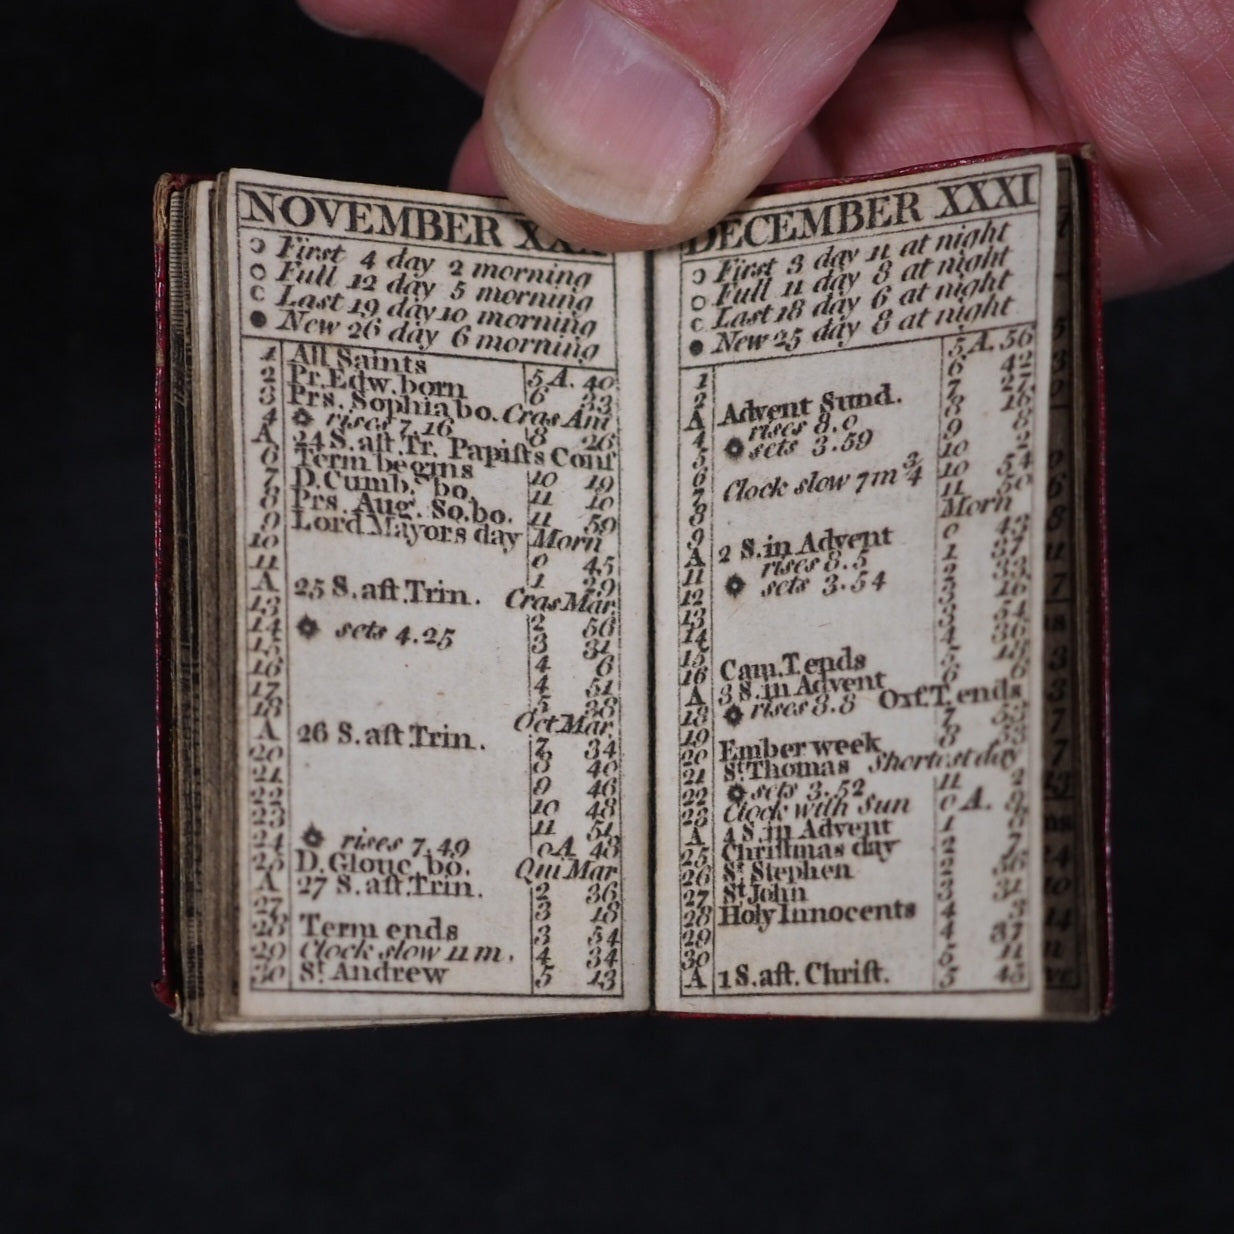 NOVEMBER
☽ First 4 day 2 morning
○ Full 12 day 5 morning
☾ Last 19 day 10 morning
● New 26 day 6 morning
1 All Saints
2 Pr. Edw. born 5 A. 40
3 Prs. Sophia bo. Cras Ani
4 rises 7.16 8 26
A 24 S. aft. Tr. Papists Conſ
6 Term begins 10 19
7 D. Cumb. bo. 11 10
8 Prs. Aug. So. bo. 11 59
9 Lord Mayors day Morn
10 0 45
11 1 29
A 25 S. aft Trin. Cras Mar
13 2 56
14 sets 4.25 3 31
15 4 6
16 4 51
17 5 38
18 Oct Mar
A 26 S. aft Trin. 7 34
20 8 40
21 9 46
22 10 48
23 11 51
24 rises 7.49 0 A. 48
25 D. Glouc. bo. Qui Mar
A 27 S. aft. Trin. 2 36
27 3 18
28 Term ends 3 54
29 Clock slow 11 m. 4 34
30 St. Andrew 5 13
DECEMBER XXXI
☽ First 3 day 11 at night
○ Full 11 day 8 at night
☾ Last 18 day 6 at night
● New 25 day 8 at night
1 5 A. 56
2 6 42
A Advent Sund. 7 27
4 rises 8.0 8 16
5 sets 3.59 9 8
6 10 2
7 Clock slow 7 m ¾ 10 54
8 11 50
9 Morn
A 2 S. in Advent 0 43
11 rises 8.5 1 37
12 sets 3.54 2 33
13 3 16
14 3 54
15 4 36
16 Cam. T. ends 5 18
A 3 S. in Advent 6 6
18 rises 8.8 Oxf. T. ends
19 7 53
20 Ember week 8 53
21 St Thomas Shortest day
22 sets 3.52 11 2
23 Clock with Sun 0 A. 9
A 4 S. in Advent 1 8
25 Christmas day 2 7
26 St Stephen 2 56
27 St John 3 31
28 Holy Innocents 4 3
29 4 37
30 5 11
A 1 S. aft. Chriſt. 5 45